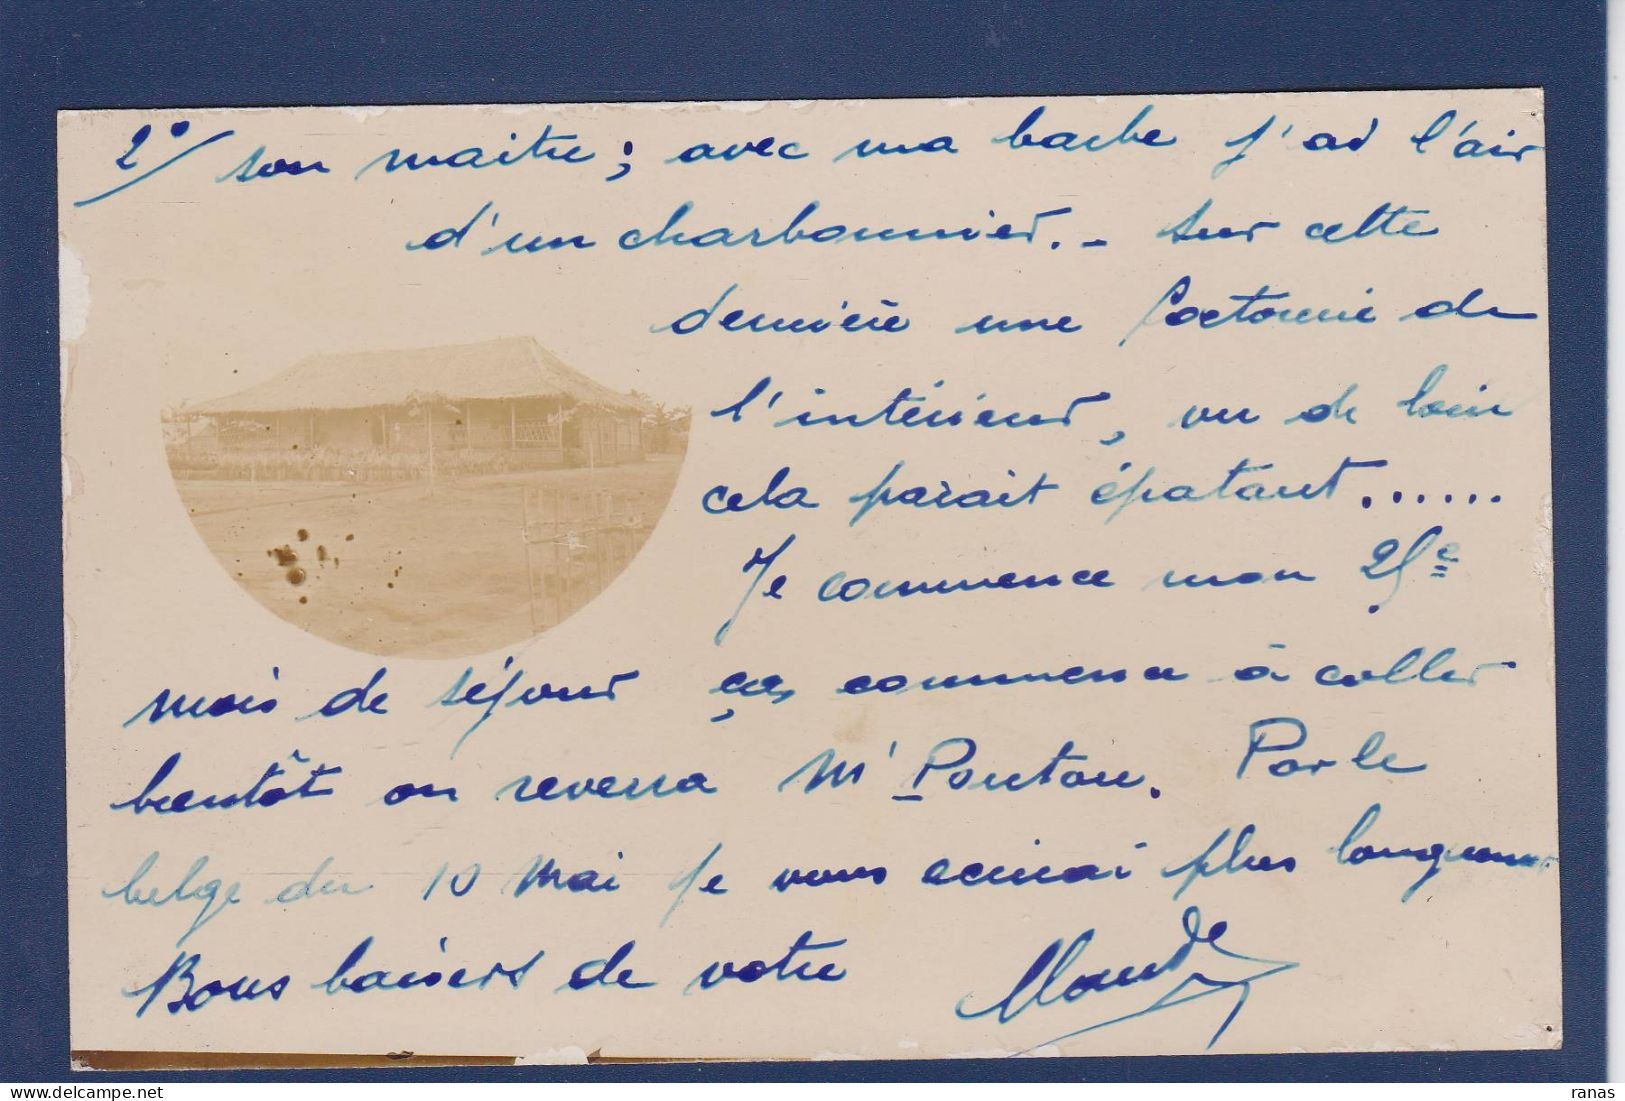 2°/ son maître ; avec ma barbe j'ai l'air
d'un charbonnier. - Sur cette
dernière une factorerie de
l'intérieur, vu de loin
cela parait épatant . . . . . .
Je commence mon 25e
mois de séjour ça commence à coller
bientôt on reverra Mr Pontou. Par le
belge du 10 Mai je vous écrirai plus longuement
Bons baisers de votre
ranas